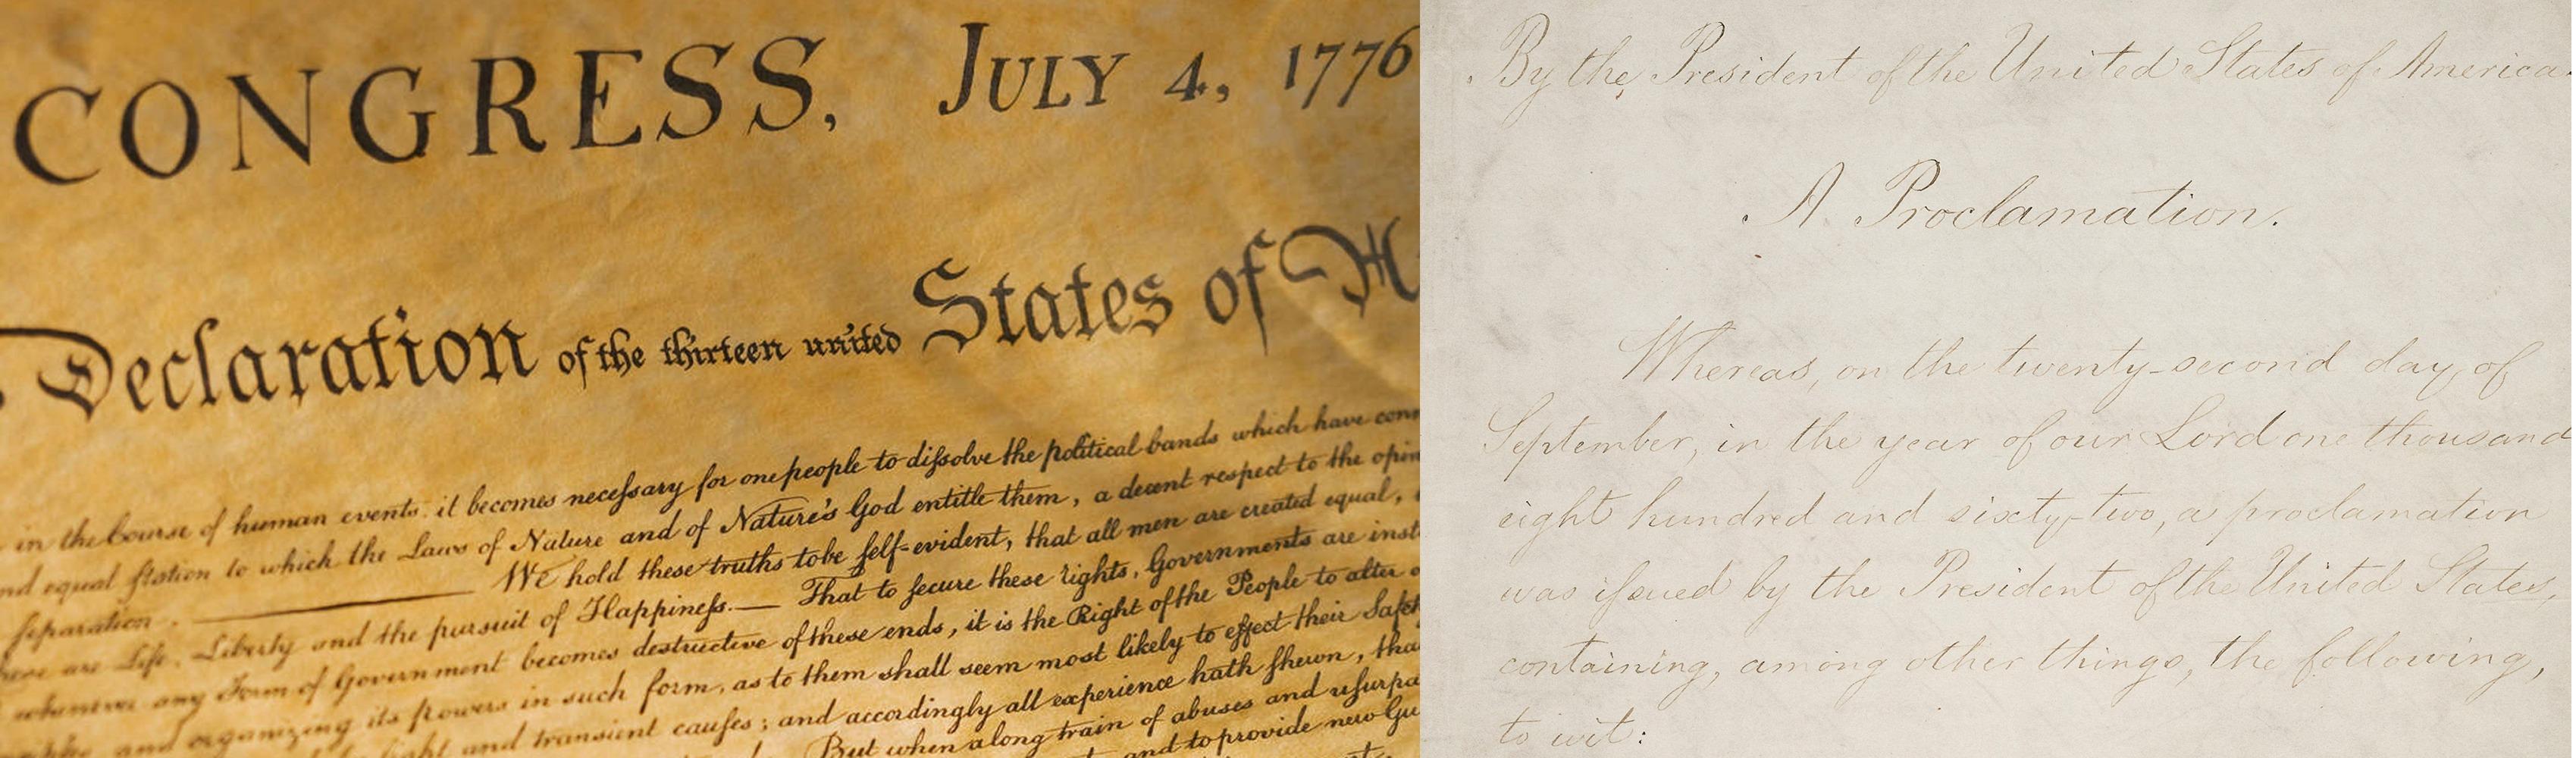 CONGRESS, JULY 4, 1776
Declaration of the thirteen united States of A
in the Course of human events, it becomes neceſsary for one people to diſsolve the political bands which have conn
nd equal ſtation to which the Laws of Nature and of Nature's God entitle them, a decent respect to the opin
ſeparation. — We hold these truths to be ſelf-evident, that all men are created equal,
are Life, Liberty and the pursuit of Happineſs.— That to ſecure these rights, Governments are inst
whenever any Form of Government becomes destructive of these ends, it is the Right of the People to alter o
and organizing its powers in such form, as to them shall seem most likely to effect their Safet
light and transient cauſes; and accordingly all experience hath ſhewn, tha
But when a long train of abuses and uſurpa
and to provide new Gu
By the President of the United States of America.
A Proclamation.
Whereas, on the twenty-second day of
September, in the year of our Lord one thousand
eight hundred and sixty-two, a proclamation
was iſsued by the President of the United States,
containing, among other things, the following,
to wit: